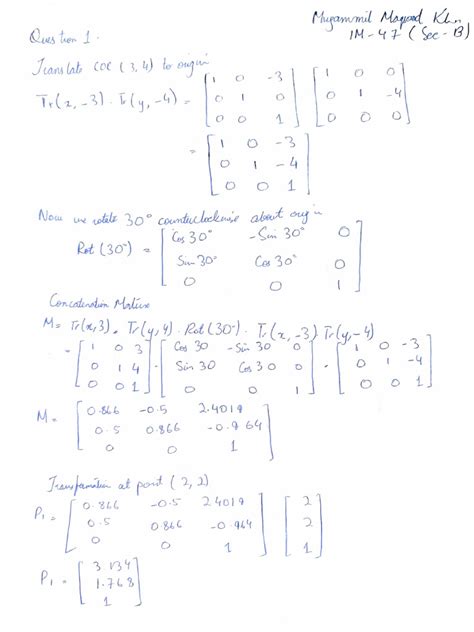 Muzammil Maqsood Khan
IM-47 (Sec-B)
Question 1.
Translate COC (3,4) to origin
Tr(x,-3) . Tr(y,-4) = [1 0 -3] [1 0 0]
[0 1 0] [0 1 -4]
[0 0 1] [0 0 0]
= [1 0 -3]
[0 1 -4]
[0 0 1]
Now we rotate 30° counterclockwise about origin
Rot (30°) = [Cos 30° -Sin 30° 0]
[Sin 30° Cos 30° 0]
[0 0 1]
Concatenation Matrix
M = Tr(x,3) . Tr(y,4) . Rot(30°) . Tr(x,-3) Tr(y,-4)
= [1 0 3] . [Cos 30 -Sin 30 0] . [1 0 -3]
[0 1 4] [Sin 30 Cos 30 0] [0 1 -4]
[0 0 1] [0 0 1] [0 0 1]
M = [0.866 -0.5 2.4019]
[0.5 0.866 -0.964]
[0 0 1]
Transformation at point (2,2)
P1 = [0.866 -0.5 2.4019] [2]
[0.5 0.866 -0.964] [2]
[0 0 1] [1]
P1 = [3.134]
[1.768]
[1]